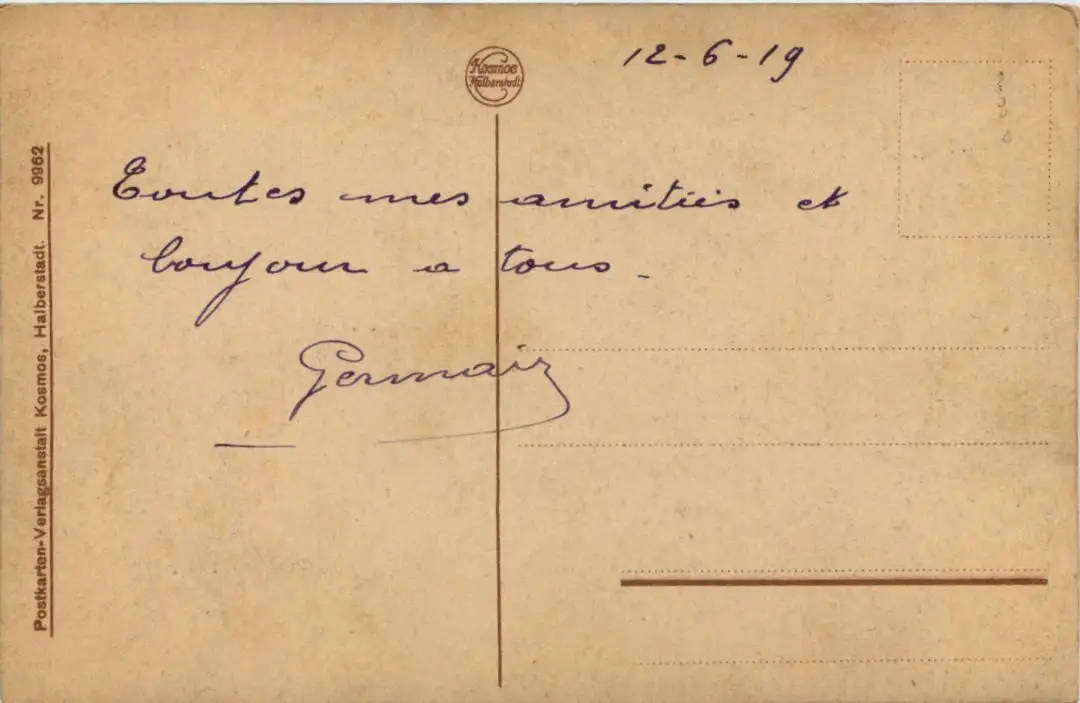 12-6-19
Kosmos
Halberstadt
Toutes mes amitiés et
bonjour a tous -
Germain
Postkarten-Verlagsanstalt Kosmos, Halberstadt. Nr. 9962